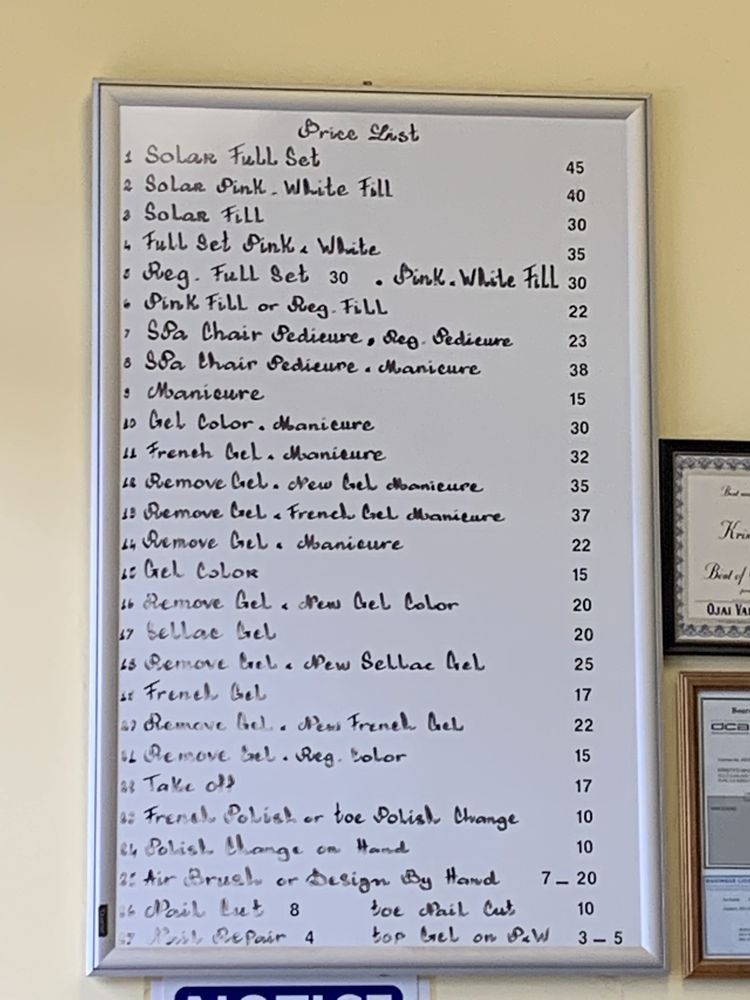 Price List
1 Solar Full Set 45
2 Solar Pink. White Fill 40
3 Solar Fill 30
4 Full Set Pink & White 35
5 Reg. Full Set 30 . Pink. White Fill 30
6 Pink Fill or Reg. Fill 22
7 SPa Chair Pedicure, Reg. Pedicure 23
8 SPa Chair Pedicure. Manicure 38
9 Manicure 15
10 Gel Color. Manicure 30
11 French Gel. Manicure 32
12 Remove Gel. New Gel Manicure 35
13 Remove Gel & French Gel Manicure 37
14 Remove Gel & Manicure 22
15 Gel Color 15
16 Remove Gel & New Gel Color 20
17 Sellac Gel 20
18 Remove Gel & New Sellac Gel 25
French Gel 17
Remove Gel. New French Gel 22
Remove Gel. Reg. Color 15
Take off 17
French Polish or toe Polish Change 10
24 Polish Change on Hand 10
25 Air Brush or Design By Hand 7 - 20
26 Nail Cut 8 toe Nail Cut 10
27 Nail Repair 4 top Gel on P&W 3 - 5
NOTICE
Best of
OJAI